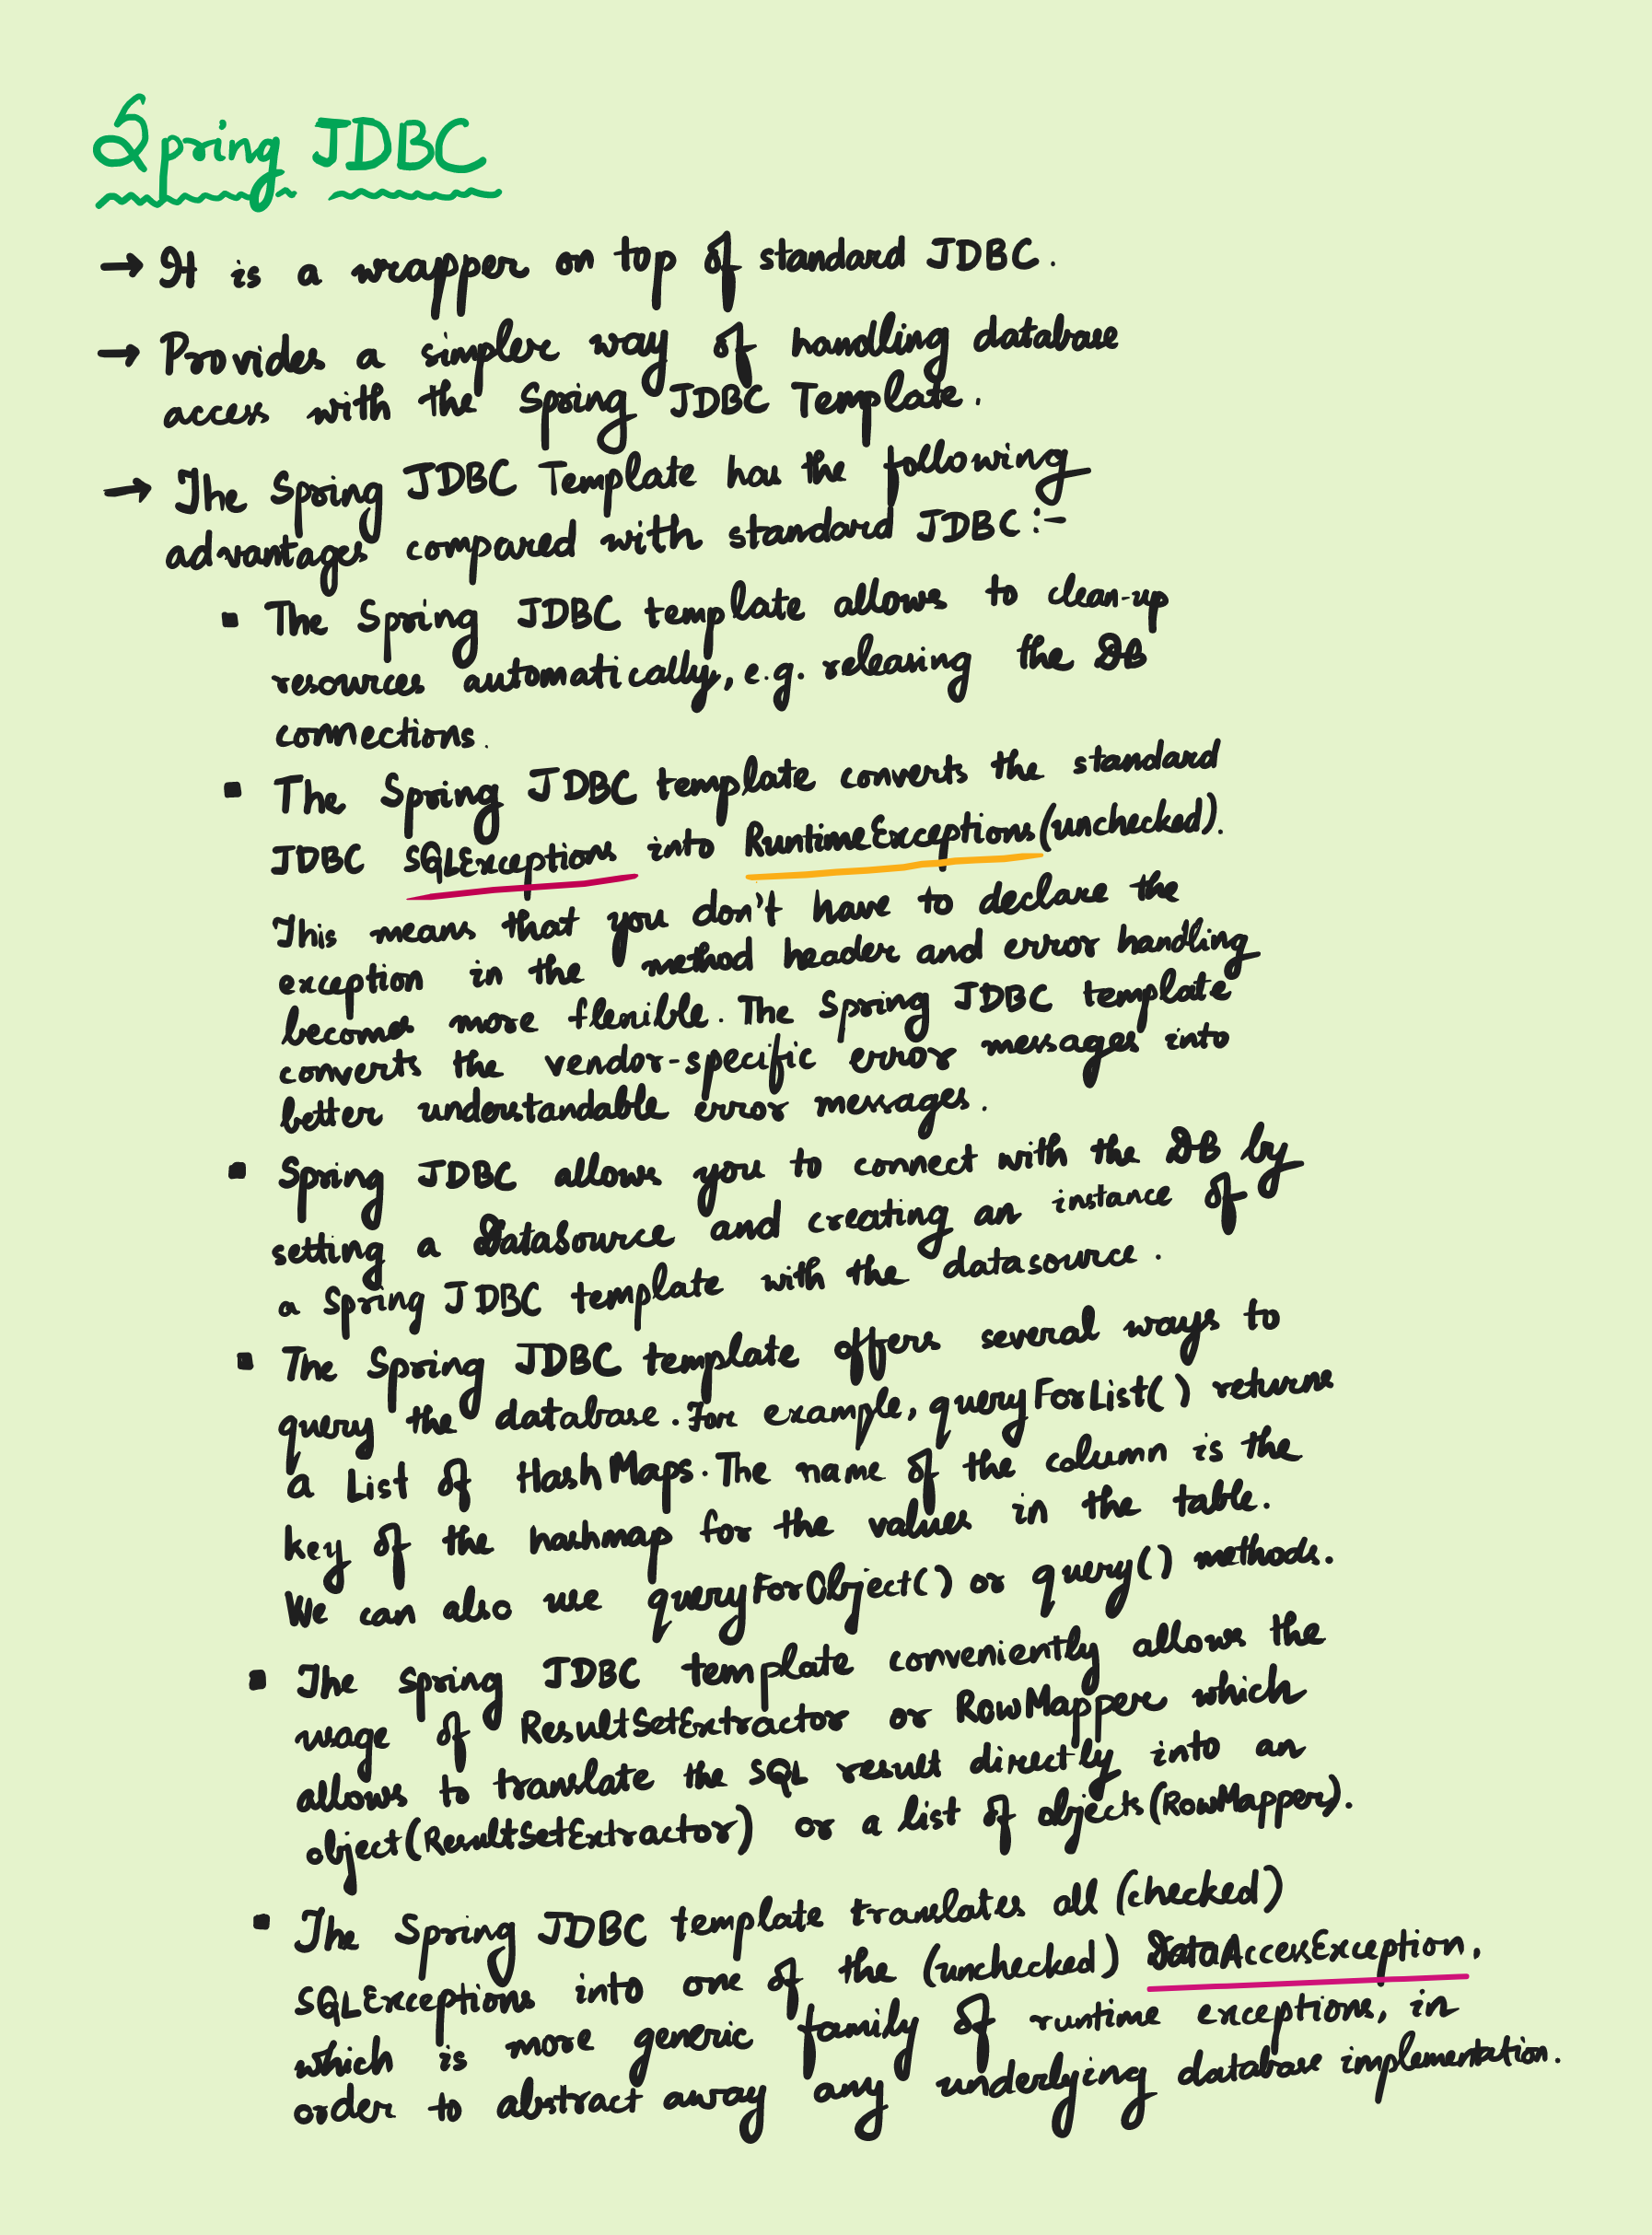 Spring JDBC
→ It is a wrapper on top of standard JDBC.
→ Provides a simpler way of handling database
access with the Spring JDBC Template.
→ The Spring JDBC Template has the following
advantages compared with standard JDBC :-
▪ The Spring JDBC template allows to clean-up
resources automatically, e.g. releasing the DB
connections.
▪ The Spring JDBC template converts the standard
JDBC SQLExceptions into RuntimeExceptions (unchecked).
This means that you don't have to declare the
exception in the method header and error handling
becomes more flexible. The Spring JDBC template
converts the vendor-specific error messages into
better understandable error messages.
▪ Spring JDBC allows you to connect with the DB by
setting a DataSource and creating an instance of
a Spring JDBC template with the datasource.
▪ The Spring JDBC template offers several ways to
query the database. For example, queryForList() returns
a List of HashMaps. The name of the column is the
key of the hashmap for the values in the table.
We can also use queryForObject() or query() methods.
▪ The Spring JDBC template conveniently allows the
usage of ResultSetExtractor or RowMapper which
allows to translate the SQL result directly into an
object (ResultSetExtractor) or a list of objects (RowMapper).
▪ The Spring JDBC template translates all (checked)
SQLExceptions into one of the (unchecked) DataAccessException,
which is more generic family of runtime exceptions, in
order to abstract away any underlying database implementation.